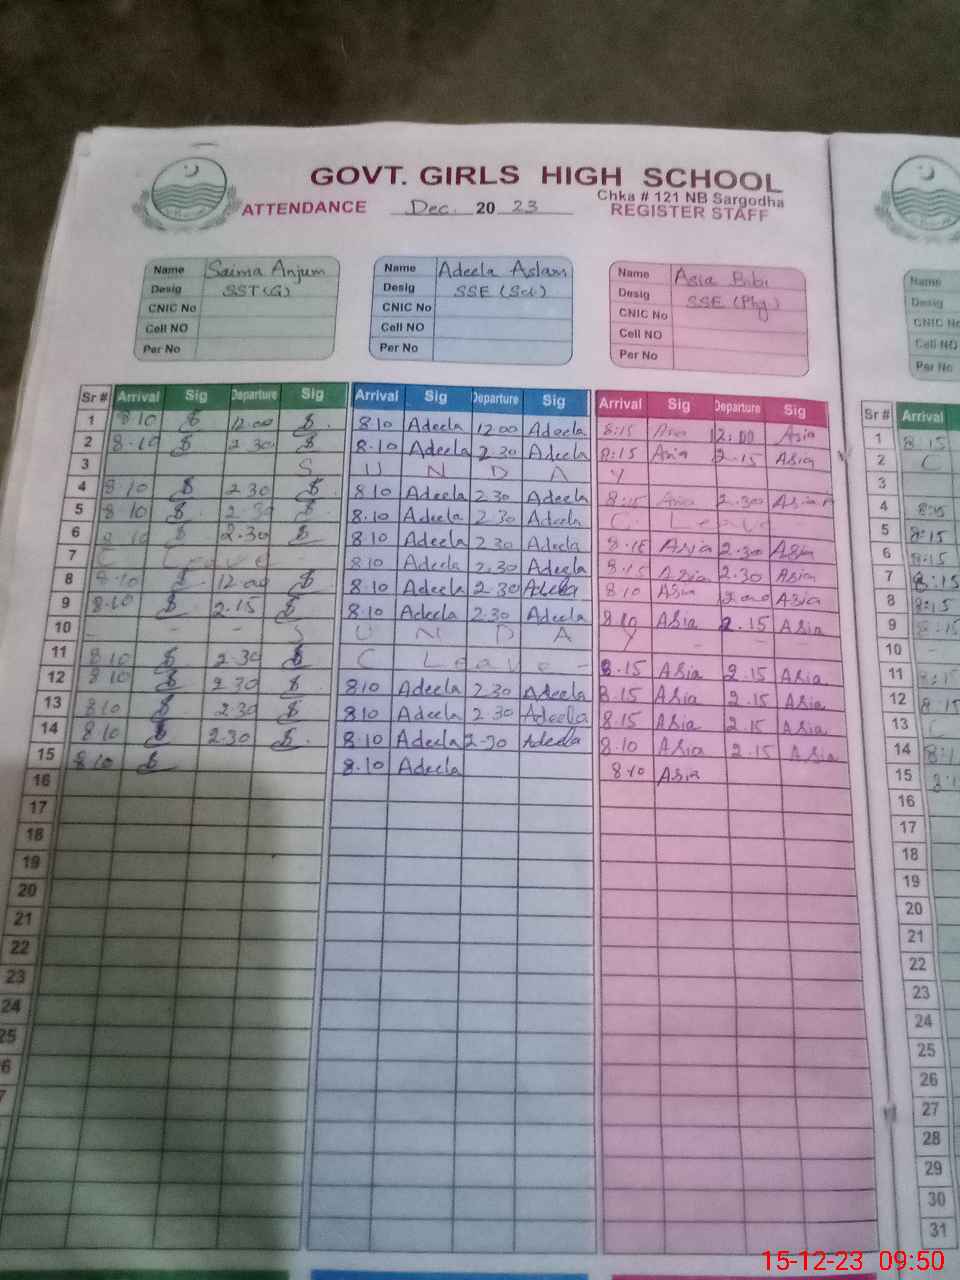 GOVT. GIRLS HIGH SCHOOL
Chka # 121 NB Sargodha
ATTENDANCE Dec. 20 23 REGISTER STAFF
Name Saima Anjum Name Adeela Aslam Name Asia Bibi Name
Desig SST(G) Desig SSE (Sci) Desig SSE (Phy) Desig
CNIC No CNIC No CNIC No CNIC No
Cell NO Cell NO Cell NO Cell NO
Per No Per No Per No Per No
Sr # Arrival Sig Departure Sig Arrival Sig Departure Sig Arrival Sig Departure Sig Sr # Arrival
1 8.10 12.00 8.10 Adeela 12 00 Adeela 8:15 Asia 12:00 Asia 1 8.15
2 8.10 2 30 8.10 Adeela 2.30 Adeela 8:15 Asia 2.15 Asia 2 C
3 S U N D A Y 3
4 8.10 2 30 8.10 Adeela 2.30 Adeela 8:15 Asia 2.30 Asia 4 8:15
5 8 10 2 30 8.10 Adeela 2.30 Adeela C Leave 5 8:15
6 8 10 2.30 8.10 Adeela 2 30 Adeela 8.15 Asia 2.30 Asia 6 8:15
7 C Leave 8.10 Adeela 2.30 Adeela 8.15 Asia 2.30 Asia 7 8:15
8 8.10 12.00 8.10 Adeela 2.30 Adeela 8.10 Asia 12.00 Asia 8 8:15
9 8.10 2.15 8.10 Adeela 2.30 Adeela 8.10 Asia 2.15 Asia 9 8:15
10 - - - S U N D A Y - - 10 -
11 8.10 2.30 C Leave - 8.15 Asia 2.15 Asia 11 8:15
12 8.10 2 30 8.10 Adeela 2 30 Adeela 8.15 Asia 2.15 Asia 12 8:15
13 8.10 2.30 8.10 Adeela 2.30 Adeela 8.15 Asia 2.15 Asia 13 C
14 8 10 2.30 8.10 Adeela 2-30 Adeela 8.10 Asia 2.15 Asia 14
15 8 10 8.10 Adeela 8.10 Asia 15
16 16
17 17
18 18
19 19
20 20
21 21
22 22
23 23
24 24
25 25
6 26
7 27
28
29
30
31
15-12-23 09:50